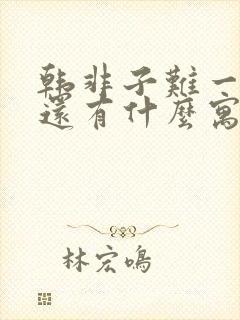 韩非子難一
還有什麼寓
林宏鳴